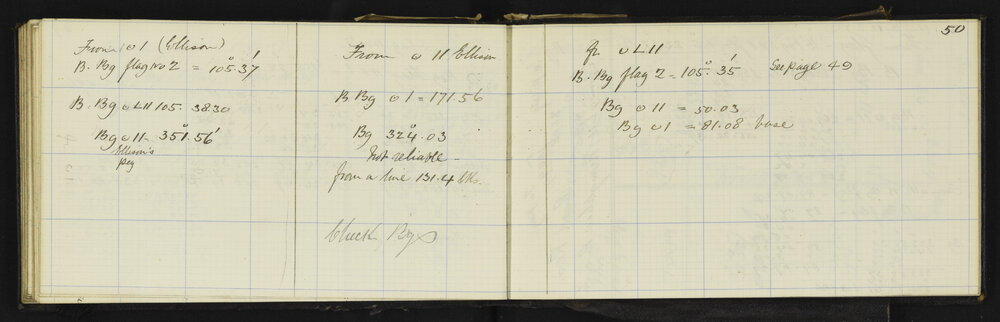 From ⊙ 1 (Ellison)
B. Bg flag no 2 = 105°.37'
B. Bg ⊙ L11 105. 38 30
Bg ⊙ 11 = 351°.56'
Ellison's
peg
From ⊙ 11 Ellison
B Bg ⊙ 1 = 171.56
Bg 324°.03
Not reliable
from a line 131.4 lks.
Check Bgs
50
fr ⊙ L11
B. Bg flag 2 = 105°.35' See page 49
Bg ⊙ 11 = 50.03
Bg ⊙ 1 = 81.08 base